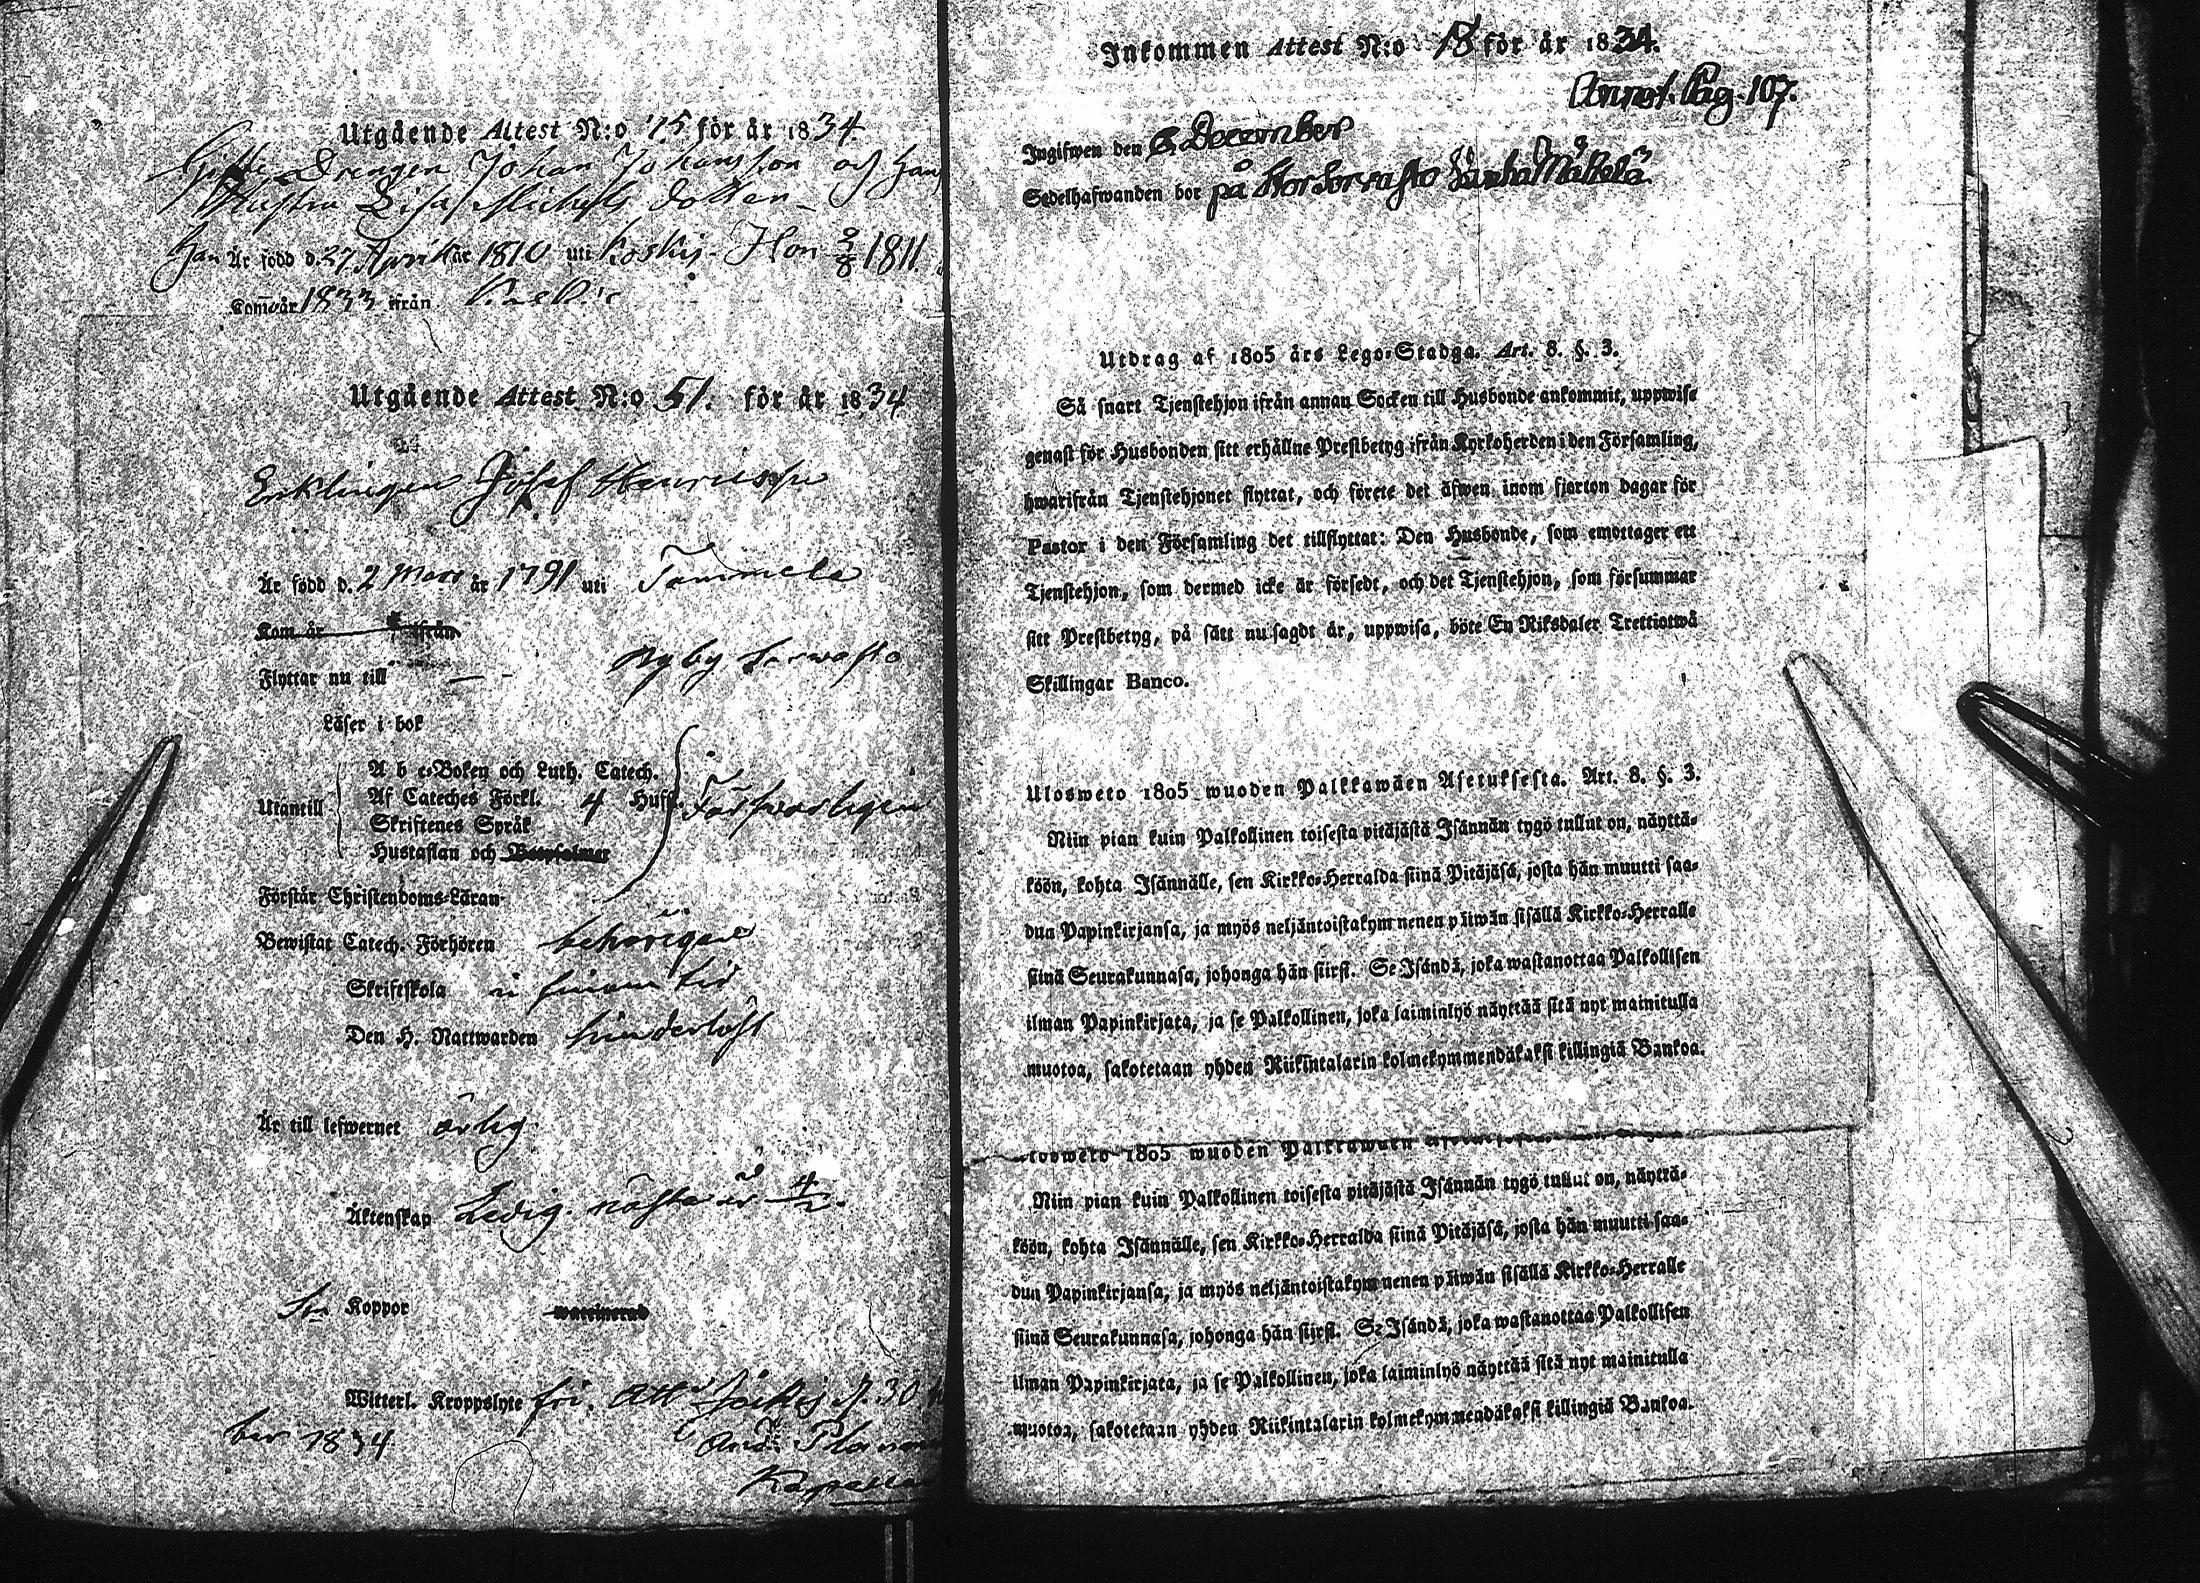 Utgående Attest N:o 15 för år 1834
Gifte Drengen Johan Johansson och hans
Hustru Lisa Michels dotter
Han Är född d. 27 April år 1810 uti Koskis. Hon 2/8 1811.
Kom år 1833 ifrån
Utgående Attest N:o 51. för år 1834
Enklingen Josef Henricsson
Är född d. 2 Mars år 1791 uti Tammela
Kom år ifrån
Flyttar nu till Nyby Sorvasto
Läser i bok
A b c-Boken och Luth. Catech.
Utantill Af Cateches Förkl. 4 Hufst. Försvarligen
Skriftenes Språk
Hustaflan och Botpsalmer
Förstår Christendoms-Läran
Bewistat Catech. Förhören behörigen
Skriftskola i sinom tid
Den H. Nattwarden hinderlöst
Är till lefwernet ärlig
Äktenskap Ledig.
Koppor waccinerad
Witterl. Kroppslyte fri. Att. Jockis d. 30
ber 1834 And:
Kapellan
Inkommen Attest N:o 18 för år 1834.
Annot. Pag. 107.
Ingifwen den 6 December
Sedelhafwanden bor på Storsorvasto Vanha Mäkelä
Utdrag af 1805 års Lego-Stadga. Art. 8. §. 3.
Så snart Tjenstehjon ifrån annan Socken till Husbonde ankommit, uppwise
genast för Husbonden sitt erhållne Prestbetyg ifrån Kyrkoherden i den Församling,
hwarifrån Tjenstehjonet flyttat, och förete det äfwen inom fjorton dagar för
Pastor i den Församling det tillflyttat: Den Husbonde, som emottager ett
Tjenstehjon, som dermed icke är försedt, och det Tjenstehjon, som försummar
sitt Prestbetyg, på sätt nu sagdt är, uppwisa, böte En Riksdaler Trettiotwå
Skillingar Banco.
Ulosweto 1805 wuoden Palkkawäen Asetuksesta. Art. 8. §. 3.
Niin pian kuin Palkollinen toisesta pitäjästä Isännän tygö tullut on, näyttä-
köön, kohta Isännälle, sen Kirkko-Herralda siinä Pitäjäsä, josta hän muutti saa-
dun Papinkirjansa, ja myös neljäntoistakymmenen päiwän sisällä Kirkko-Herralle
siinä Seurakunnasa, johonga hän siirsi. Se Isändä, joka wastanottaa Palkollisen
ilman Papinkirjata, ja se Palkollinen, joka laiminlyö näyttää sitä nyt mainitulla
muotoa, sakotetaan yhden Riikintalarin kolmekymmendäkaksi killingiä Bankoa.
losweto 1805 wuoden Palkkawäen
Niin pian kuin Palkollinen toisesta pitäjästä Isännän tygö tullut on, näyttä-
köön, kohta Isännälle, sen Kirkko-Herralda siinä Pitäjäsä, josta hän muutti saa-
dun Papinkirjansa, ja myös neljäntoistakymmenen päiwän sisällä Kirkko-Herralle
siinä Seurakunnasa, johonga hän siirsi. Se Isändä, joka wastanottaa Palkollisen
ilman Papinkirjata, ja se Palkollinen, joka laiminlyö näyttää sitä nyt mainitulla
muotoa, sakotetaan yhden Riikintalarin kolmekymmendäkaksi killingiä Bankoa.